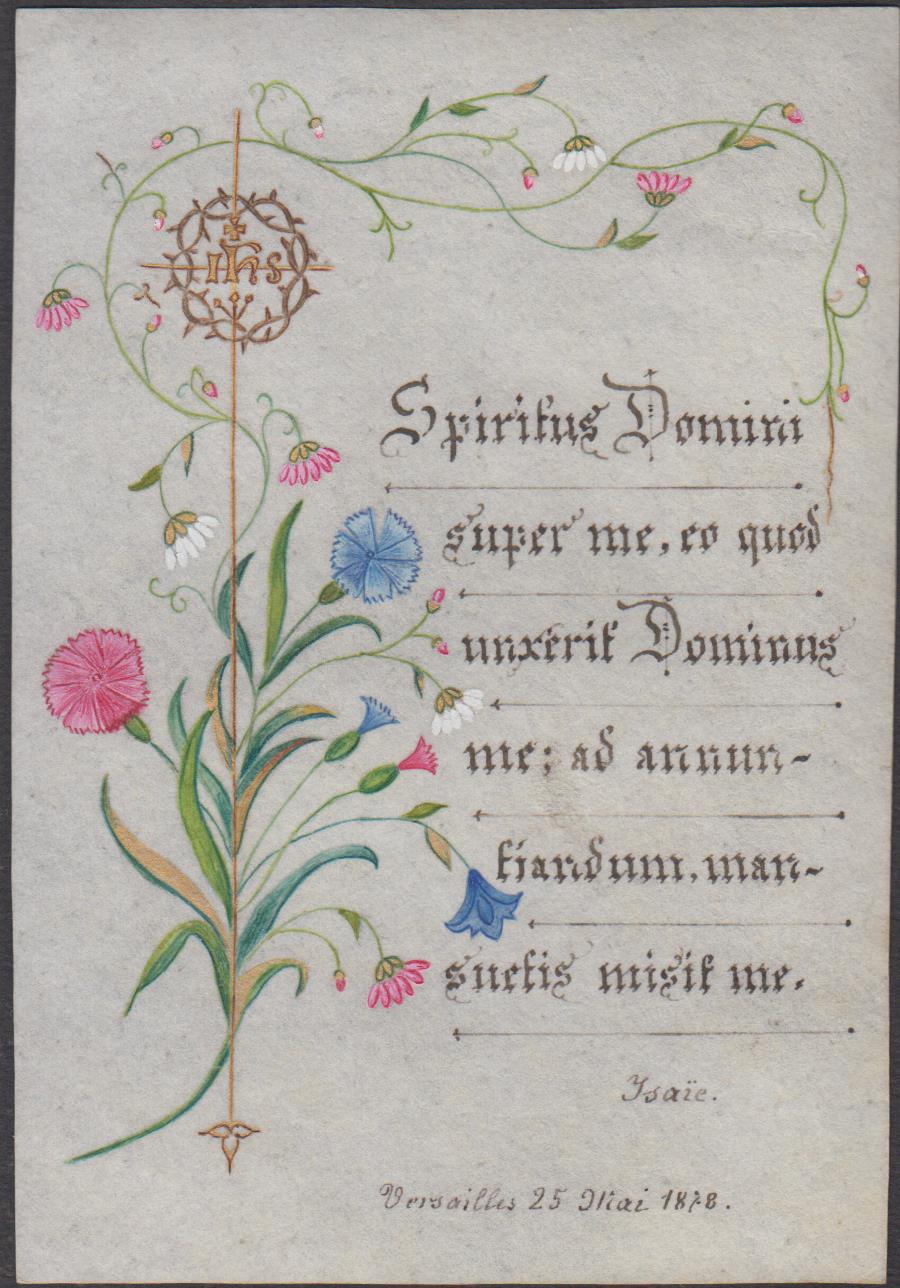 ihs
Spiritus Domini
super me, eo quod
unxerit Dominus
me; ad annun-
tiandum, man-
suetis misit me.
Isaïe.
Versailles 25 Mai 1878.